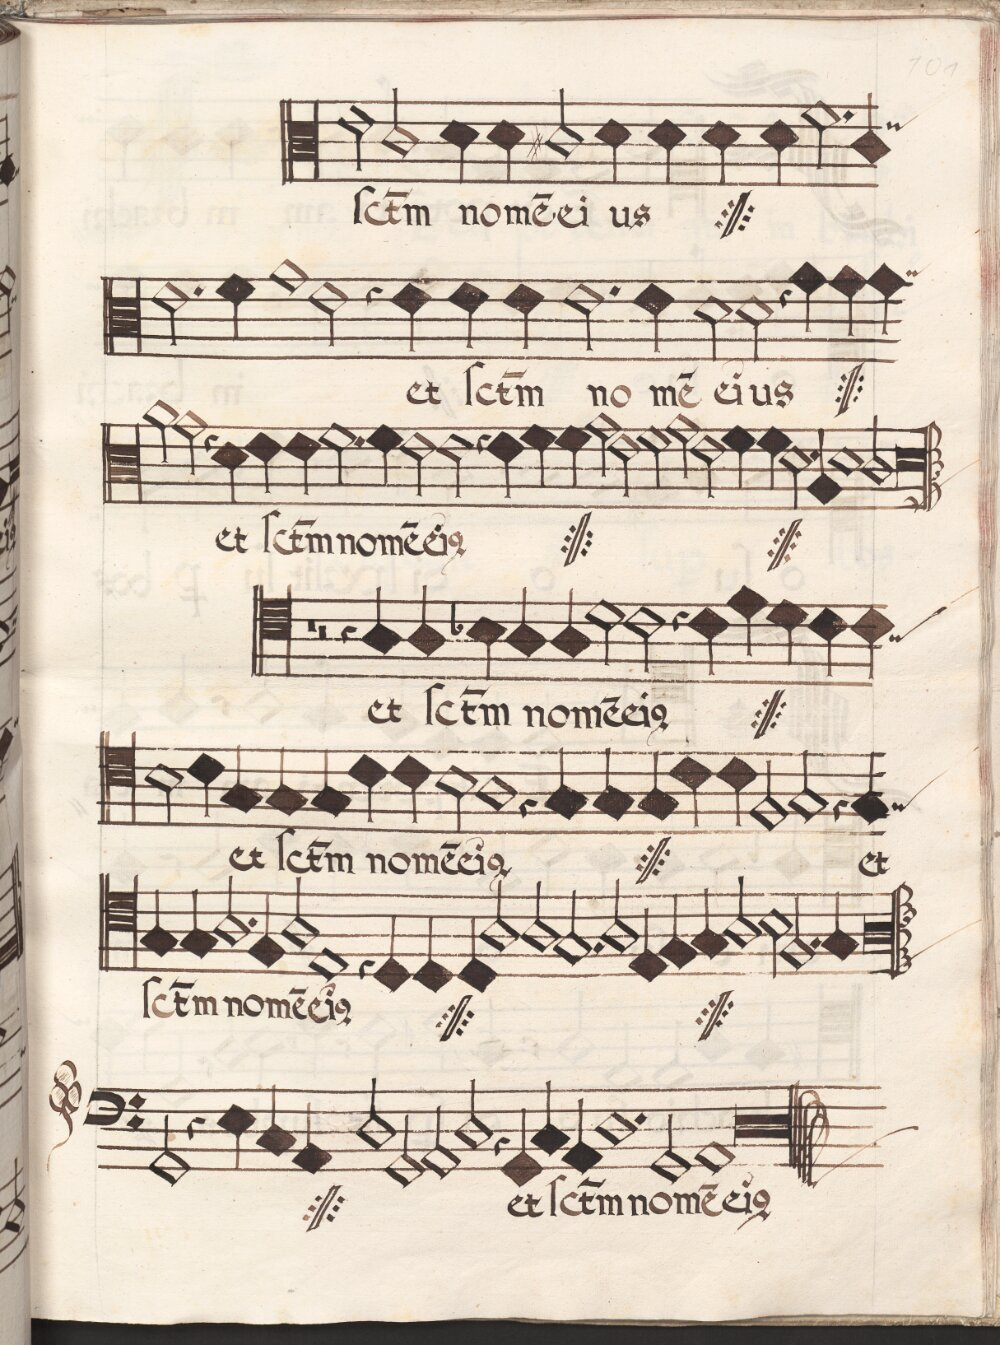 101
sctm̄ nomē ei us
et sctm̄ no mē ei us
et sctm̄ nomē eiꝰ
et sctm̄ nomē eiꝰ
et sctm̄ nomē eiꝰ et
sctm̄ nomē eiꝰ
et sctm̄ nomē eiꝰ